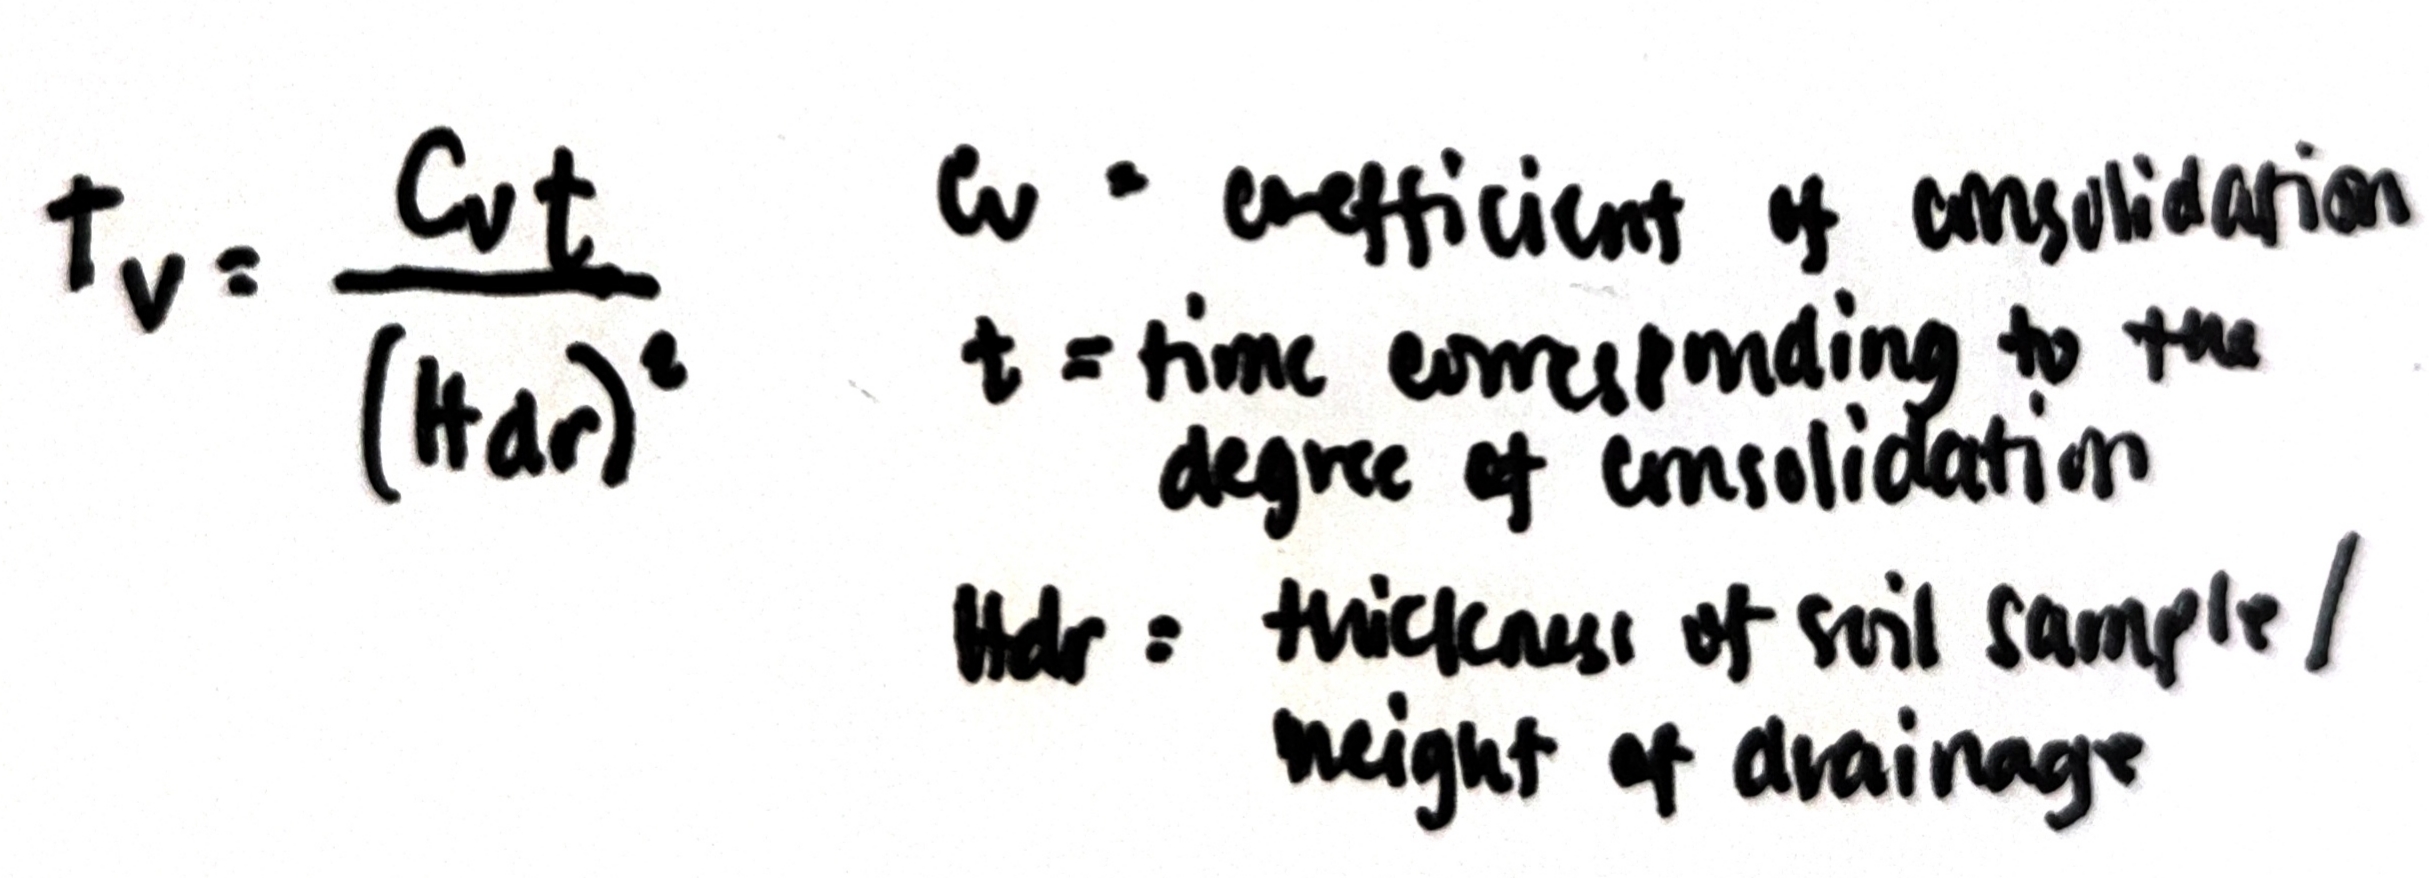 Tv = Cv t / (Hdr)²
Cv = coefficient of consolidation
t = time corresponding to the
degree of consolidation
Hdr = thickness of soil sample /
height of drainage